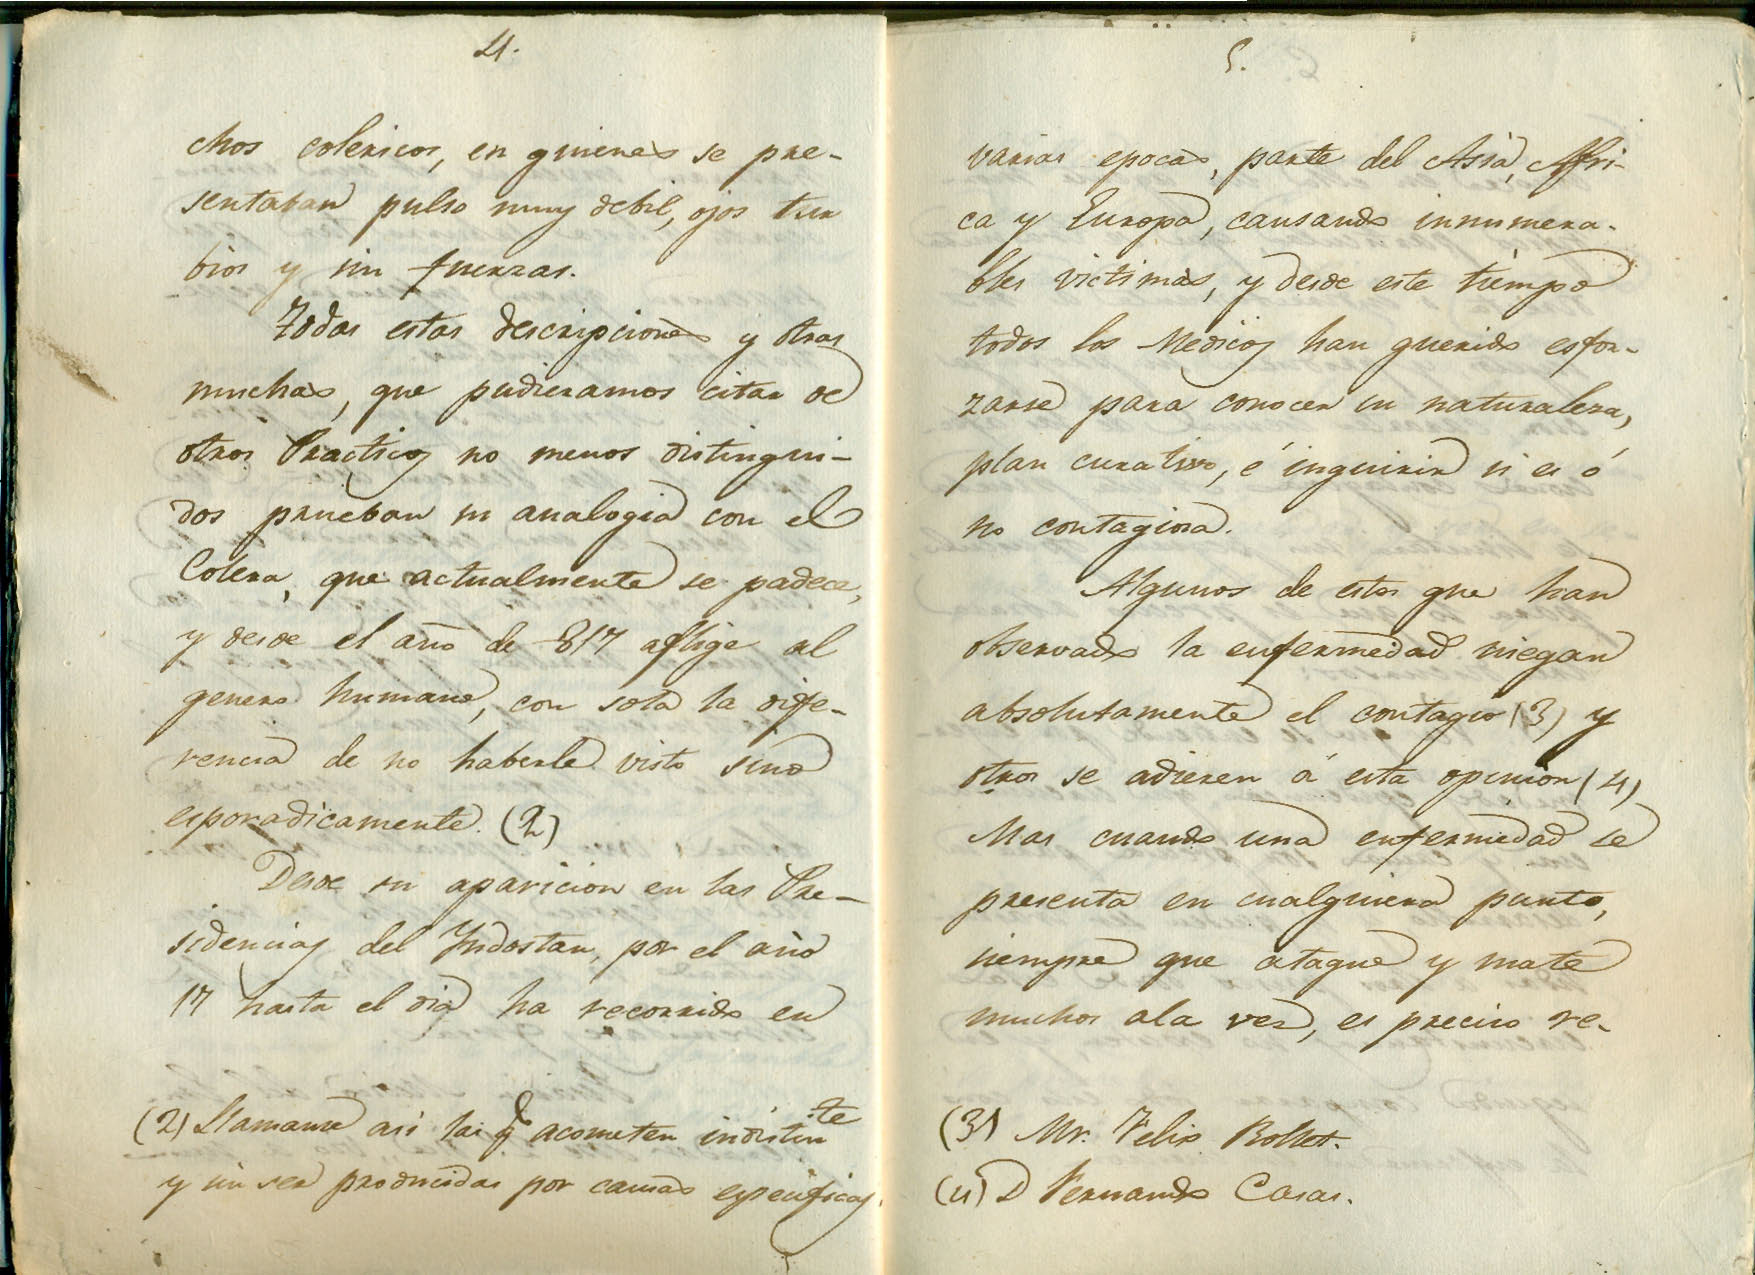 4.
chos colericos, en quienes se pre-
sentaban pulso muy debil, ojos tur
bios y sin fuerzas.
Todas estas descripciones y otras
muchas, que pudieramos citar de
otros Practicos no menos distingui-
dos prueban su analogia con el
Colera, que actualmente se padece,
y desde el año de 817 aflige al
genero humano, con sola la dife-
rencia de no haberle visto sino
esporadicamente. (2)
Desde su aparicion en las Pre-
sidencias del Yndostan, por el año
17 hasta el dia ha recorrido en
(2) Llamanse asi las q acometen indistinte
y sin ser producidas por causas especificas.
5.
varias epocas, parte del Asia, Afri-
ca y Europa, causando innumera-
bles victimas, y desde este tiempo
todos los Medicos han querido esfor-
zarse para conocer su naturaleza,
plan curativo, é inquirir si es ó
no contagiosa.
Algunos de estos que han
observado la enfermedad niegan
absolutamente el contagio (3) y
otros se adieren á esta opinion (4)
Mas cuando una enfermedad se
presenta en cualquiera punto,
siempre que ataque y mate
muchos ala vez, es preciso re-
(3) Mr. Felix
(4) D Fernando Casas.